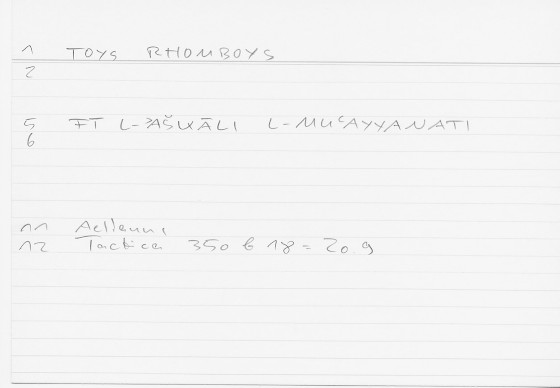 1 TOYS RHOMBOYS
2
5 FĪ L-ʾAŠKĀLI L-MUʿAYYANATI
6
11 Aelianus
12 Tactica 350 b 18 = 20. 9